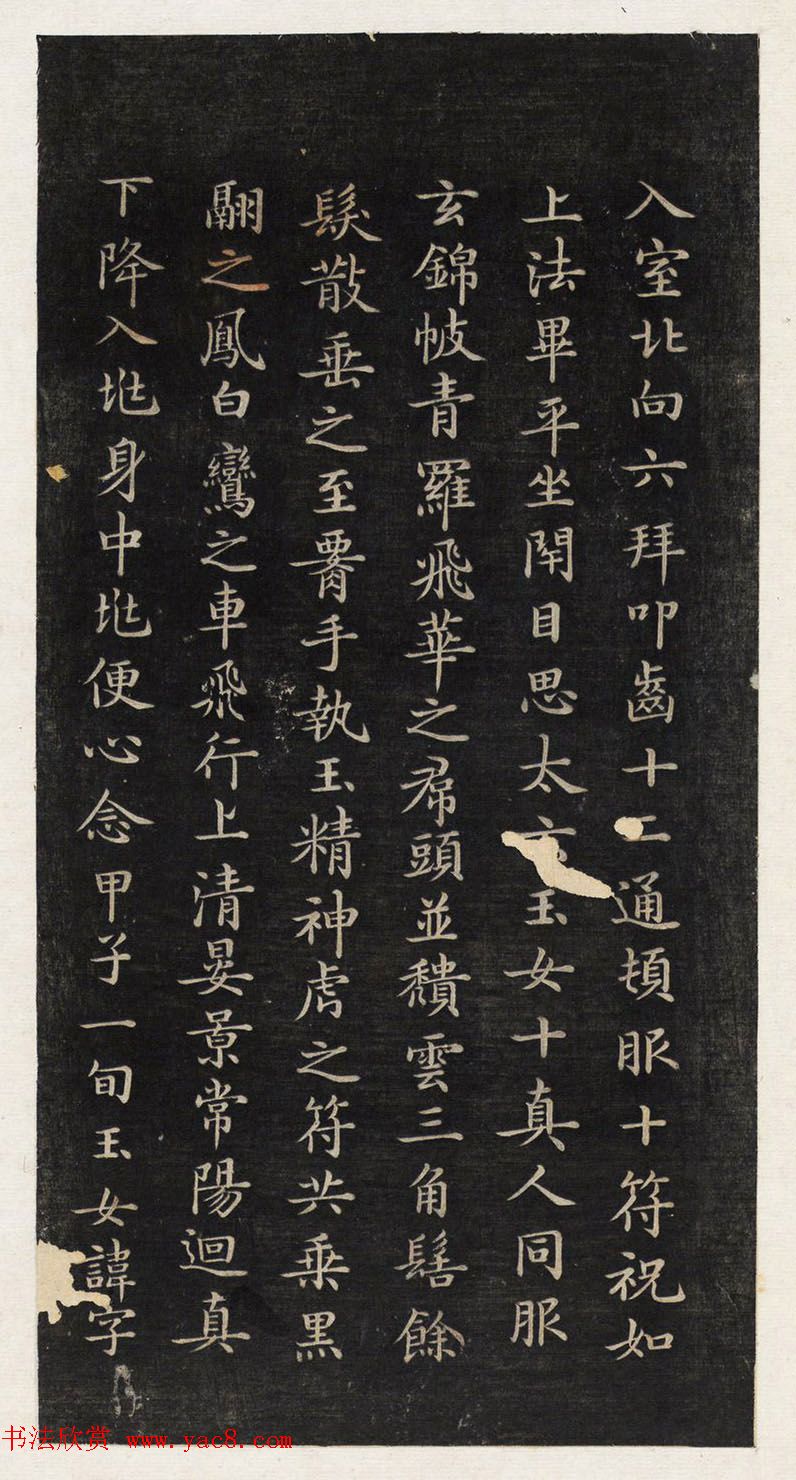 入室北向六拜叩齒十二通頓服十符祝如
上法畢平坐閇目思太玄玉女十真人同服
玄錦帔青羅飛華之帬頭並穨雲三角髻餘
髮散垂之至𦝫手執玉精神虎之符共乗黑
翮之鳳白鸞之車飛行上清晏景常陽迴真
下降入兆身中兆便心念甲子一旬玉女諱字
书法欣赏 www.yac8.com